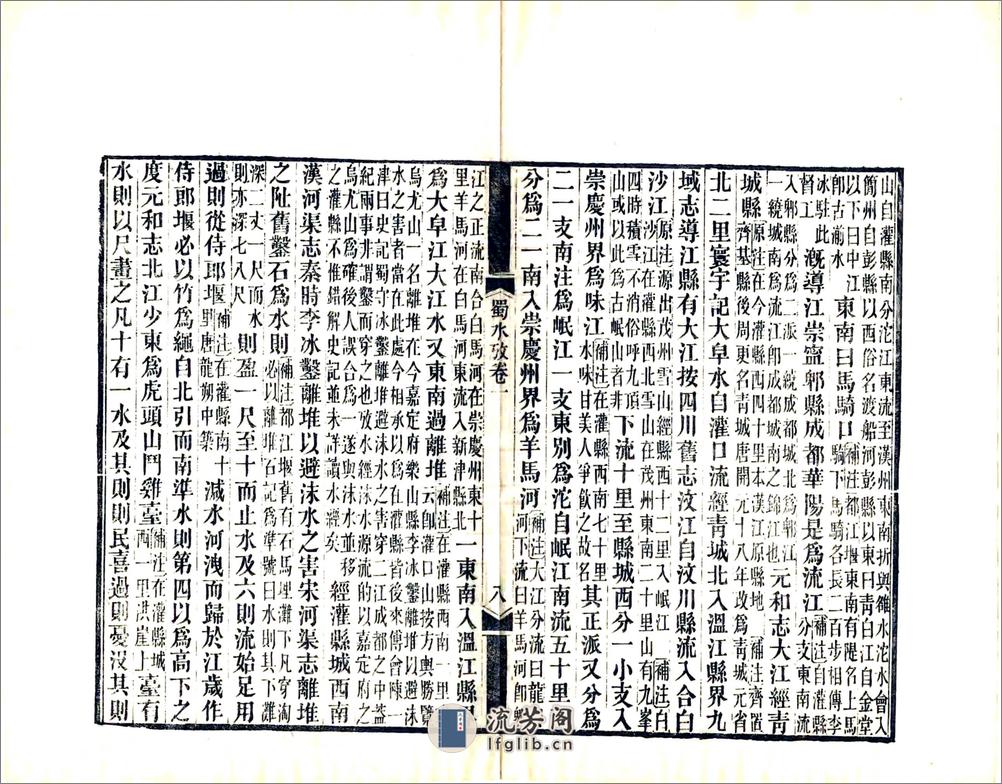 山自灌縣南分沱江東流至漢州東南折與雒水沱水會入
簡州自彭縣以西俗名渡船河彭縣以東曰青白江自金堂
以下曰中江
東南曰馬騎口
補注都江堰東南有隄名上馬
騎下馬騎各長二百步相傳李
冰駐此
督工
溉導江崇寧郫縣成都華陽是爲流江
補注自灌縣
分支東南流
入郫縣分爲二派一繞成都城北爲郫江
一繞城南爲流江卽成都城南之錦江也
元和志大江經靑
城縣
原注在今灌縣西四十里本漢江原縣地
齊基縣後周東名靑城唐開元十八年改爲
北二里寰宇記大皁水自灌口流經靑城北入溫江縣界九
域志導江縣有大江按四川舊志汶江自汶川縣流入合白
沙江
原注源出茂州雪山經縣西入江
沙江在灌縣西北雪山在茂州東南二十里山有九峯
四時積雪不消俗呼九頂
山或以此爲古岷山者非
下流十里至縣城西分一小支入
崇慶州界爲味江
補注在灌縣西南七十里
水味甘美人爭飮之故名
其正派又分爲
二一支南注爲岷江一支東別爲沱自岷江南流五十里
分爲二一南入崇慶州界爲羊馬河
補注大江分流曰龍
蜀水攷卷一
八
江之正流南合白馬河在崇慶州東十
里羊馬河在白馬河東流入新津縣北
一東南入溫江縣
爲大皁江大江水又東南過離堆
補注在灌縣西南一里
烏尤山一名離堆在今嘉定府樂山縣
水之害者當在此處今相承以爲在灌縣皆後來傅會
津曰史記蜀守冰鑿離堆辟沫水之害穿二江成都之中
紀兩事非謂鑿而穿之也攷水經沫水
烏尤山爲確後人誤合爲一遂與沫水並移
之灌縣不惟錯解史記並未詳讀水經矣
經灌縣城西南
漢河渠志秦時李冰鑿離堆以避沫水之害宋河渠志離堆
之趾舊鑿石爲水則
補注都江堰舊有石馬埋灘下凡穿淘
必以離堆石記爲準號曰水則其下灘
深二丈一尺而水
則亦深七八尺
則盈一尺至十而止水及六則流始足用
過則從侍郎堰
補注在灌縣南十
里唐龍朔中築
減水河洩而歸於江歲作
侍郎堰必以竹爲繩自北引而南準水則第四以爲高下之
度元和志北江少東爲虎頭山鬥雞臺
補注在灌縣城
西一里洪崖上
臺有
水則以尺畫之凡十有一水及其則則民喜過則憂没其則
流芳阁
lfglib.cn